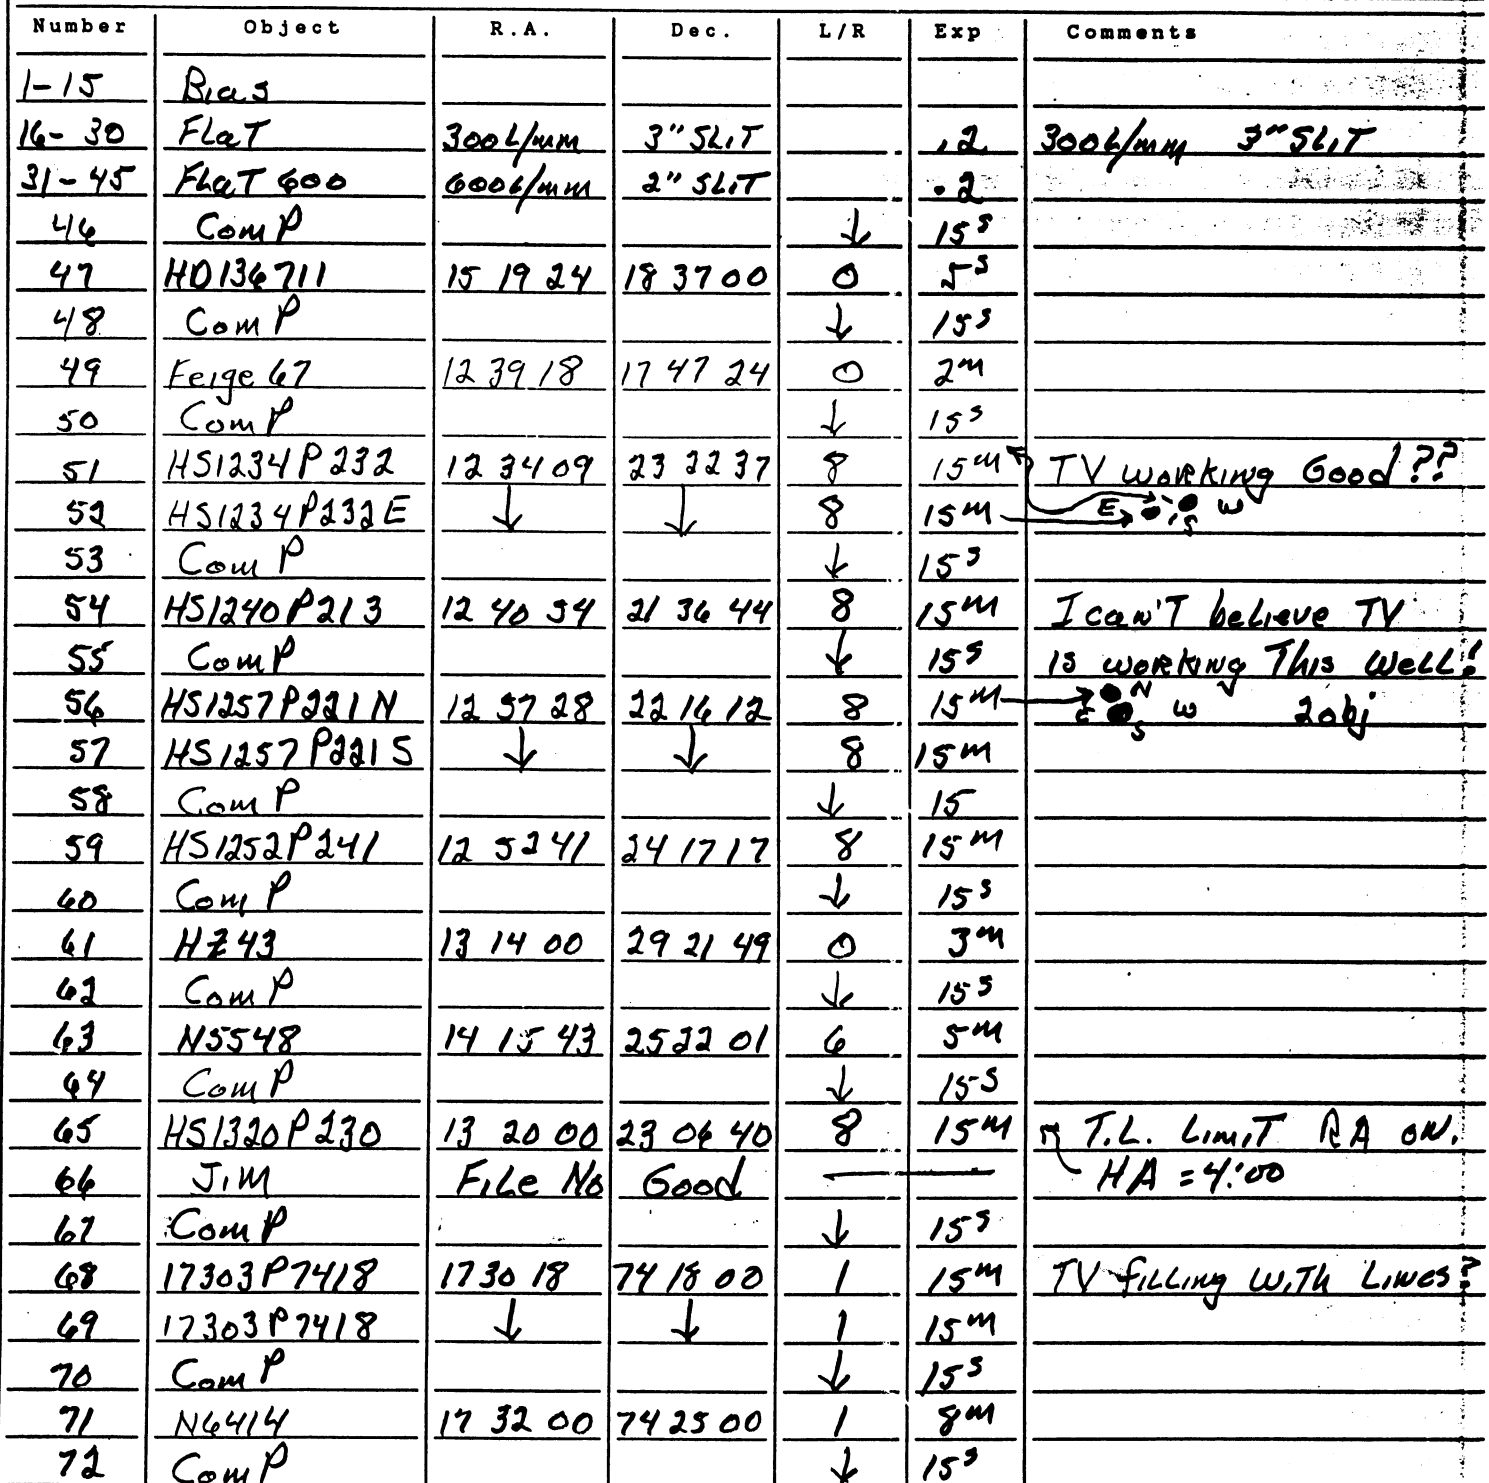 Number Object R.A. Dec. L/R Exp Comments
1-15 Bias
16-30 FLaT 300L/mm 3" SLiT .2 300L/mm 3" SLiT
31-45 FLaT 600 600L/mm 2" SLiT .2
46 ComP ↓ 15s
47 HD136711 15 19 24 18 37 00 0 5s
48 ComP ↓ 15s
49 Feige 67 12 39 18 17 47 24 0 2m
50 ComP ↓ 15s
51 HS1234P232 12 34 09 23 22 37 8 15m TV working Good??
52 HS1234P232E ↓ ↓ 8 15m E S W
53 ComP ↓ 15s
54 HS1240P213 12 40 54 21 36 44 8 15m I can'T believe TV
55 ComP ↓ 15s is working This well!
56 HS1257P221N 12 57 28 22 16 12 8 15m N E S W 2obj
57 HS1257P221S ↓ ↓ 8 15m
58 ComP ↓ 15
59 HS1252P241 12 52 41 24 17 17 8 15m
60 ComP ↓ 15s
61 HZ43 13 14 00 29 21 49 0 3m
62 ComP ↓ 15s
63 N5548 14 15 43 25 22 01 6 5m
64 ComP ↓ 15s
65 HS1320P230 13 20 00 23 06 40 8 15m T.L. LimiT RA on.
66 Jim FiLe No Good — HA = 4:00
67 ComP ↓ 15s
68 17303P7418 17 30 18 74 18 00 1 15m TV filling wiTh Lines?
69 17303P7418 ↓ ↓ 1 15m
70 ComP ↓ 15s
71 N6414 17 32 00 74 25 00 1 8m
72 ComP ↓ 15s